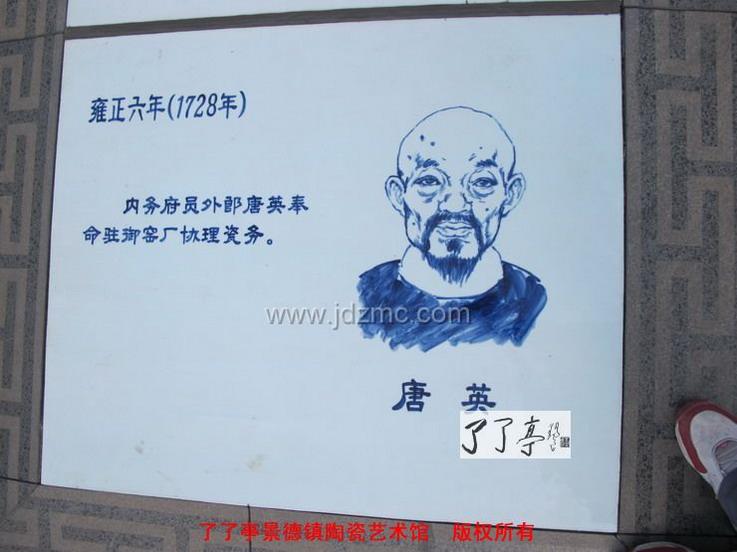 雍正六年(1728年)
内务府员外郎唐英奉
命驻御窑厂协理瓷务。
www.jdzmc.com
唐 英
了了亭
了了亭景德镇陶瓷艺术馆 版权所有